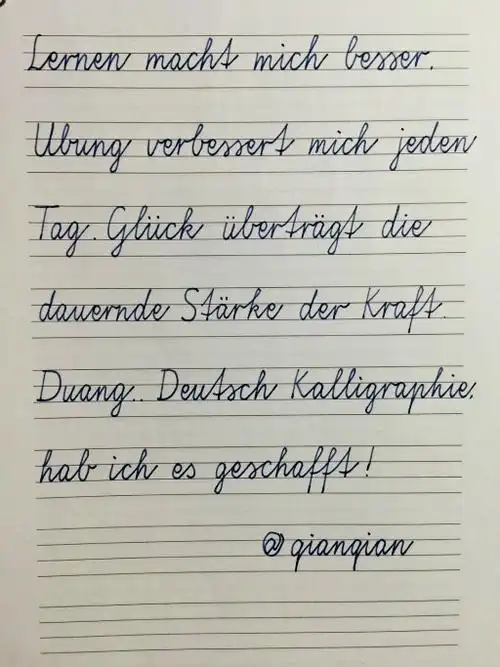 Lernen macht mich besser.
Ubung verbessert mich jeden
Tag. Glück überträgt die
dauernde Stärke der Kraft.
Duang.. Deutsch Kalligraphie.
hab ich es geschafft!
@qianqian